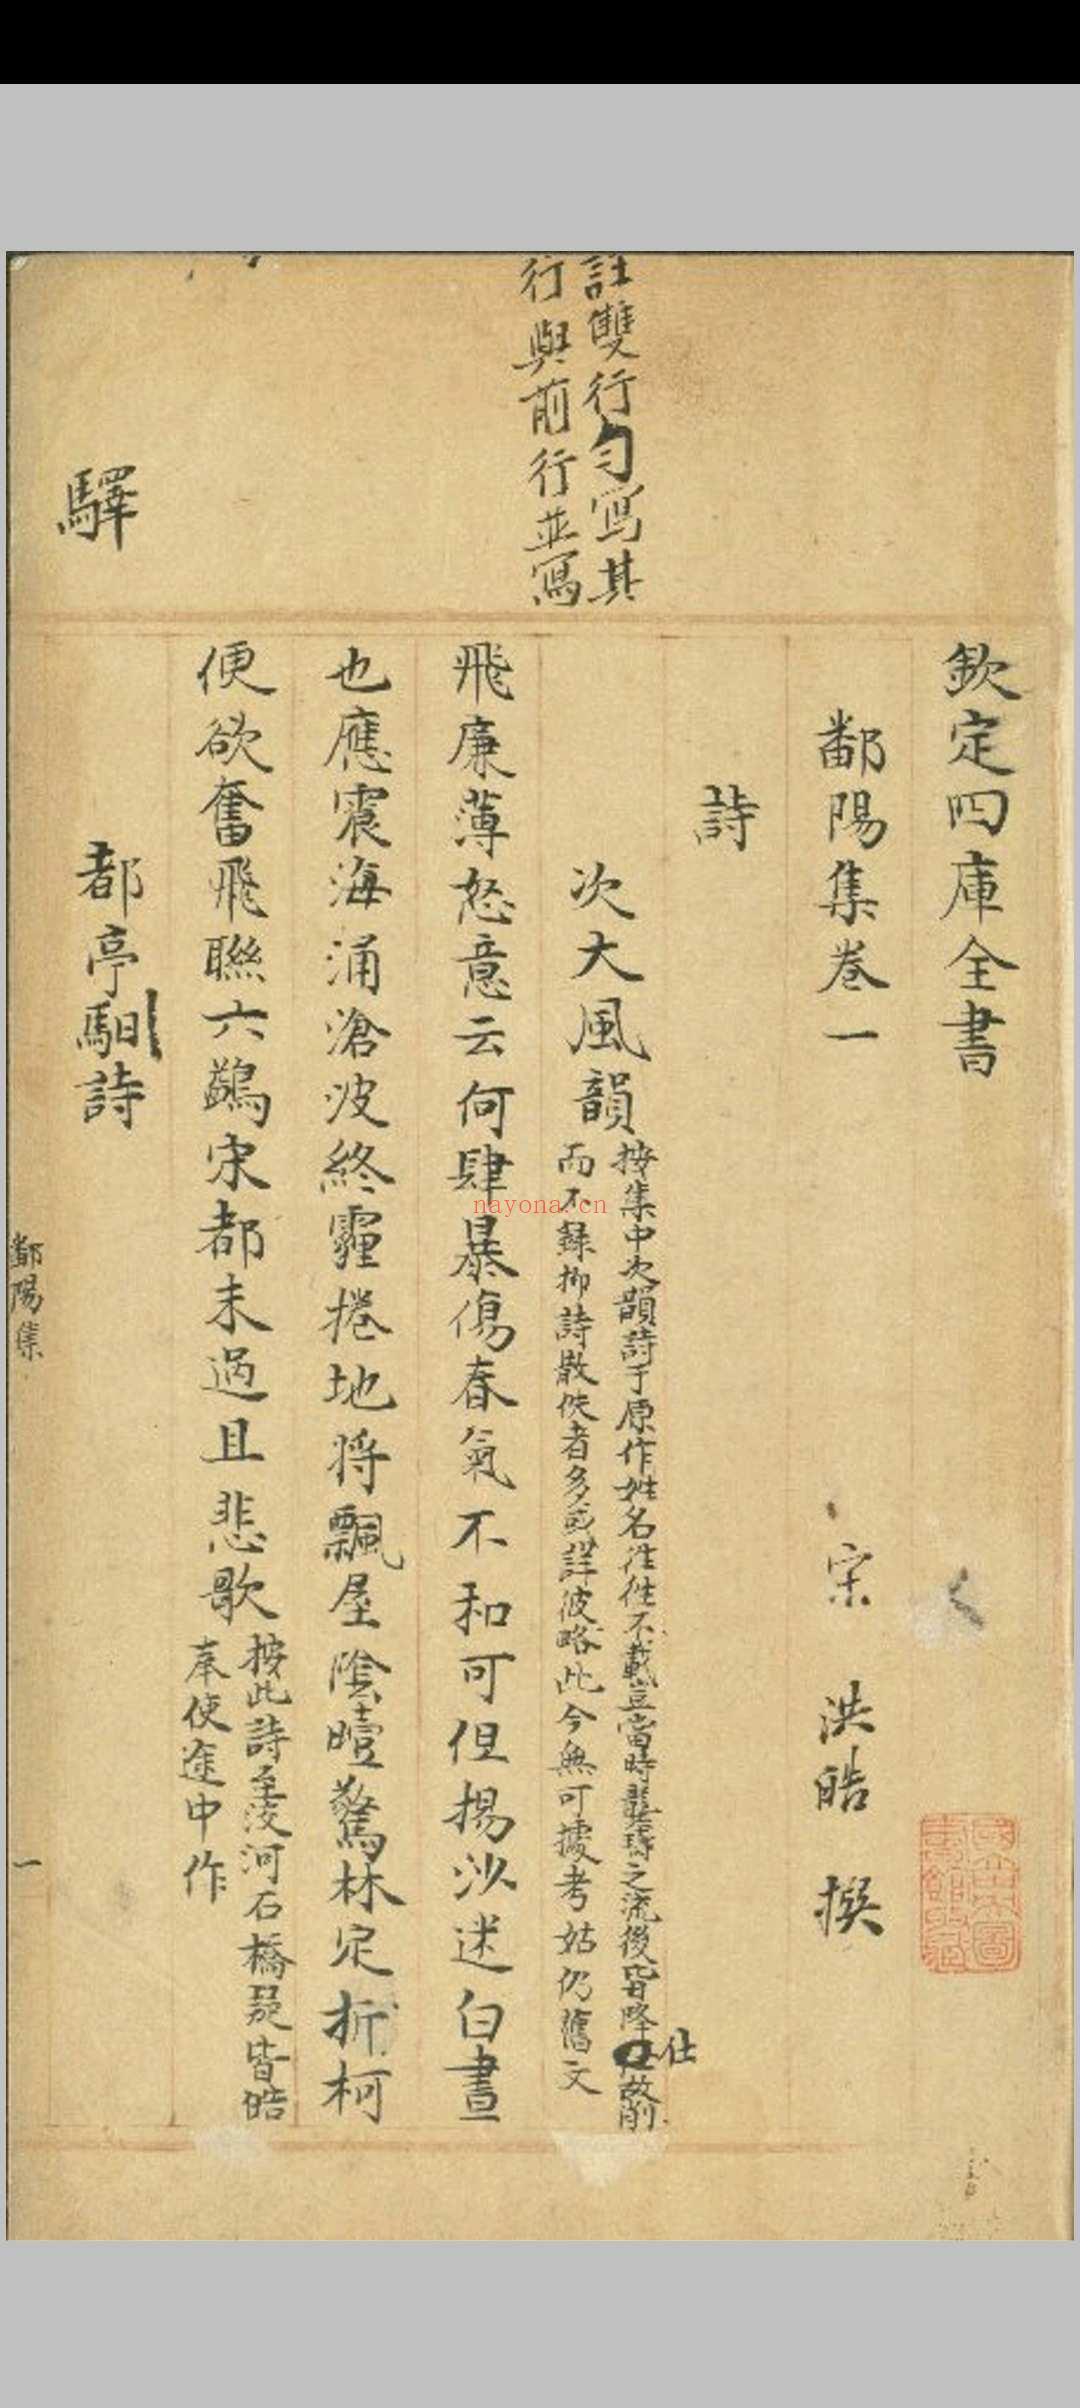 註雙行勻寫其
行與前行並寫
驛
欽定四庫全書
鄱陽集卷一
宋 洪皓 撰
詩
次大風韻
按集中次韻詩于原作姓名往往不載豈當時龔璹之流後皆降仕故削
仕
而不錄抑詩散佚者多或詳彼略此今無可據考姑仍舊文
飛廉薄怒意云何肆暴傷春氣不和可但揚沙迷白晝
也應震海涌滄波終霾捲地將飄屋陰曀驚林定折柯
便欲奮飛聯六鷁宋都未過且悲歌
按此詩至淩河石橋疑皆皓
奉使途中作
都亭馹詩
鄱陽集
一
nayona.cn